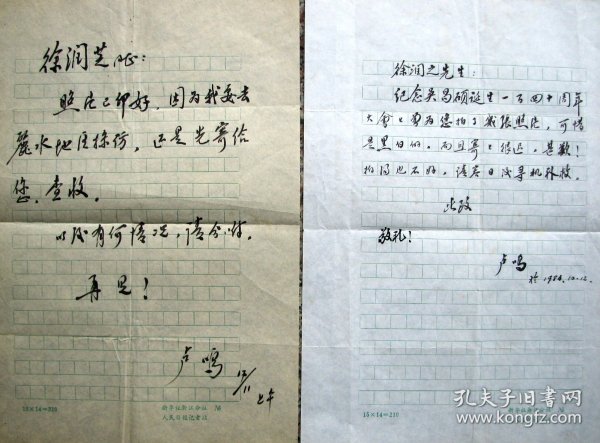 徐润芝同志:
照片已印好,因为我要去
丽水地区採访,还是先寄给
您,查收。
以后有何情况,请今告。
再见!
卢鸣
12/11 上午
15×14=210
新华社浙江分社
人民日报记者站
徐润之先生:
纪念吴昌硕诞生一百四十周年
大会上曾为您拍了几张照片,可惜
是黑白的,而且寄上很迟,甚歉!
拍得也不好,请容日后寻机补救。
此致
敬礼!
卢鸣
於1984.12.12.
15×14=210
新华社浙江分社
人民日报记者站
孔夫子旧书网